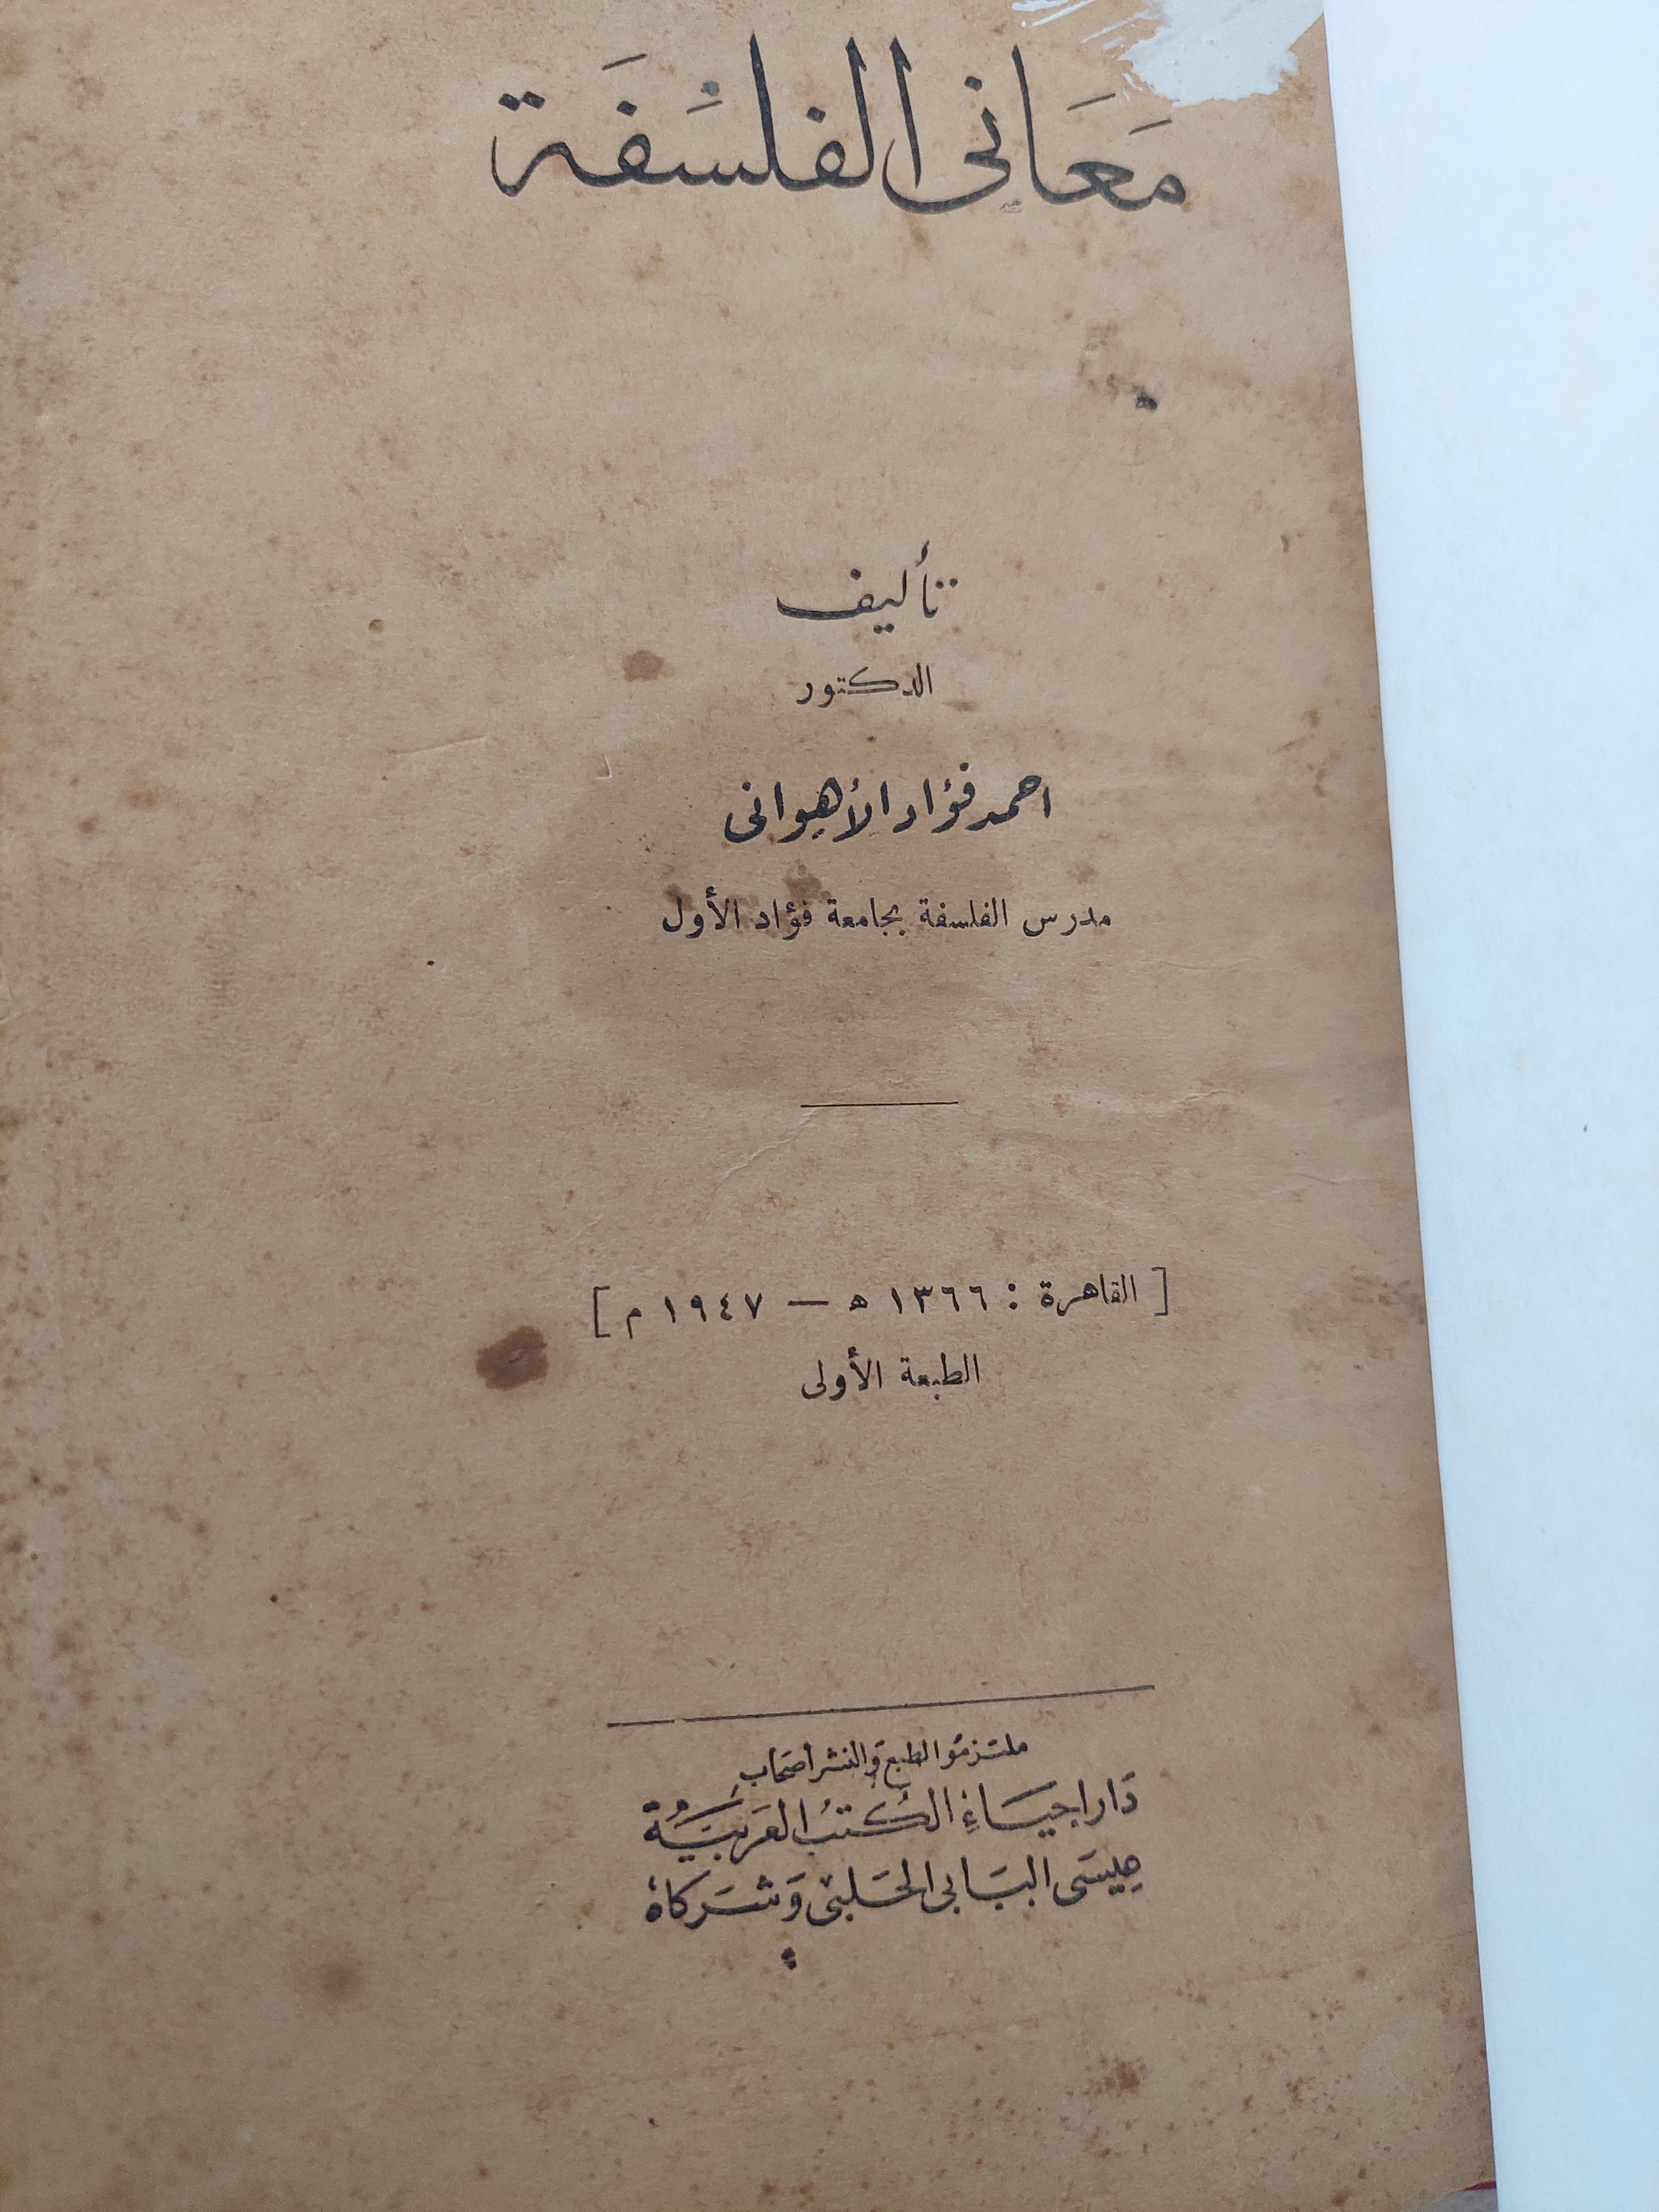 معانى الفلسفة
تأليف
الدكتور
احمد فؤاد الأهوانى
مدرس الفلسفة بجامعة فؤاد الأول
[ القاهرة : ١٣٦٦ ه — ١٩٤٧ م ]
الطبعة الأولى
ملتزمو الطبع والنشر أصحاب
دار احياء الكتب العربية
عيسى البابى الحلبى وشركاه